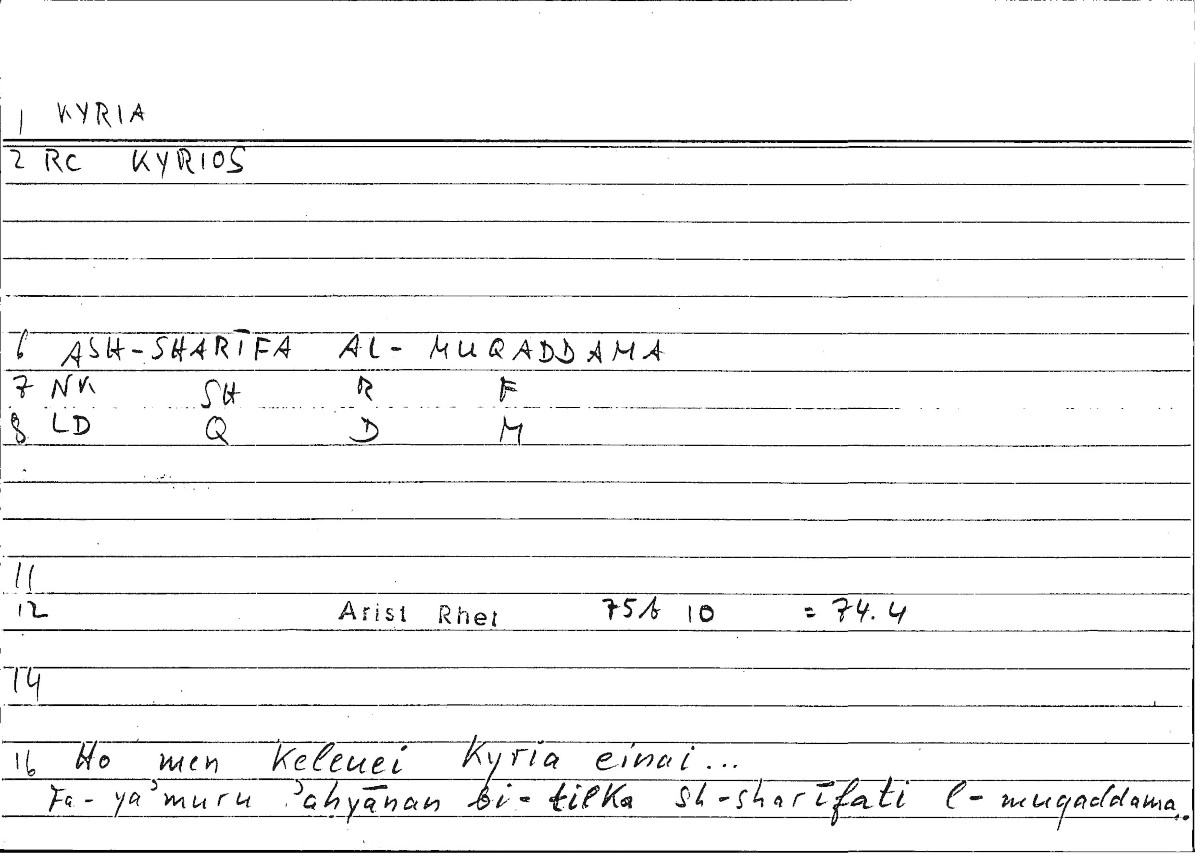 1 KYRIA
2 RC KYRIOS
6 ASH-SHARĪFA AL-MUQADDAMA
7 NK SH R F
8 LD Q D M
11
12 Arist Rhet 75b 10 = 74.4
14
16 Ho men keleuei kyria einai...
Fa-ya'muru 'aḥyānan bi-tilka sh-sharīfati l-muqaddama..